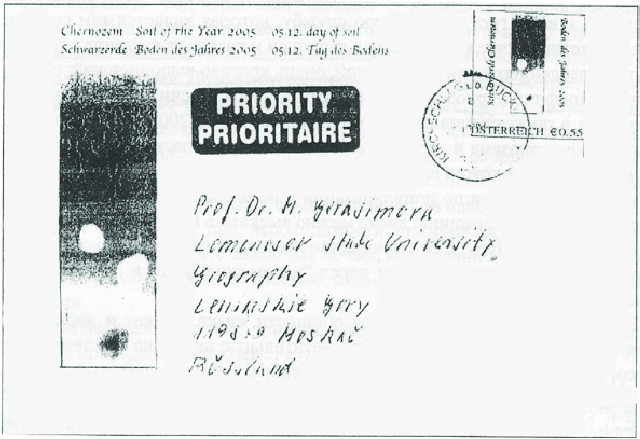 Chernozem Soil of the Year 2005 05.12. day of soil
Schwarzerde Boden des Jahres 2005 05.12. Tag des Bodens
Schwarzerde Chernozem
Boden des Jahres 2005
ÖSTERREICH €0.55
PRIORITY
PRIORITAIRE
Prof. Dr. M. Gerasimova
Lomonosov State University
Geography
Leninskie Gory
Moskau
Russland